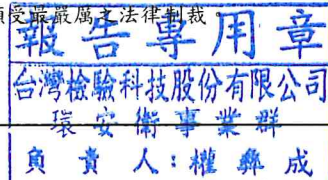 願受最嚴厲之法律制裁。
報告專用章
台灣檢驗科技股份有限公司
環安衛事業群
負責人：權彝成